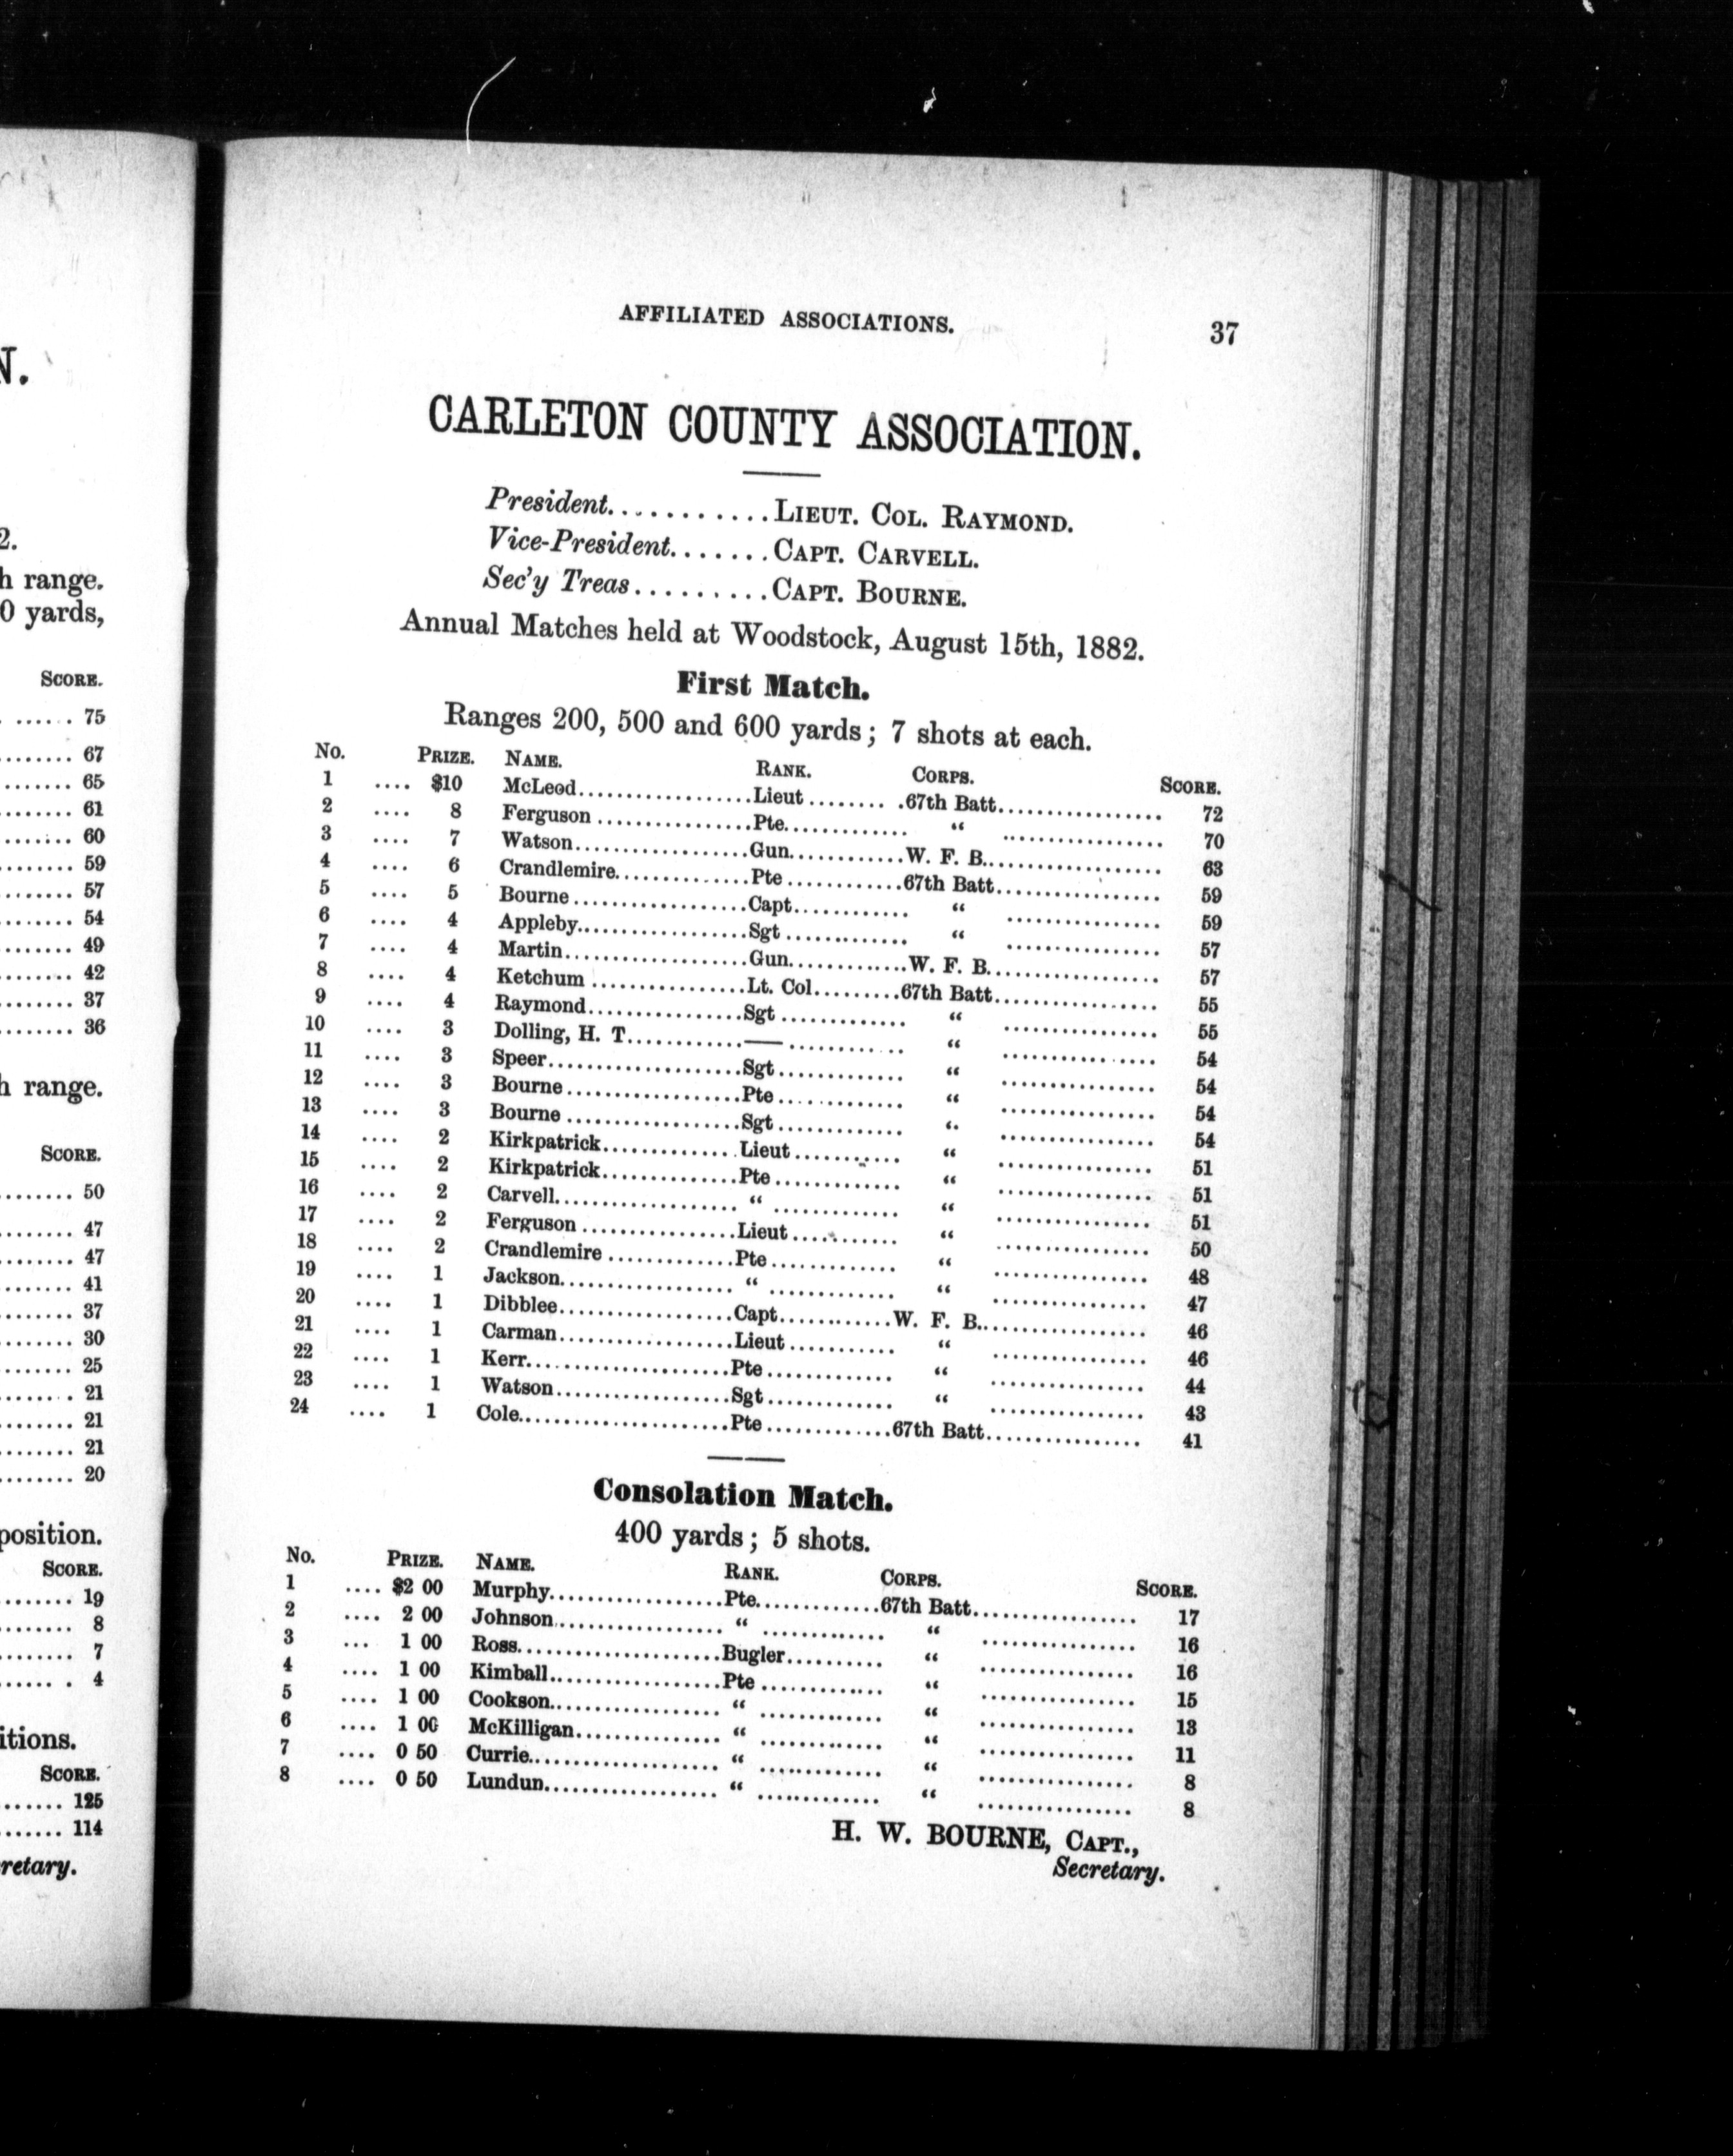 N.
2.
h range.
0 yards,
SCORE.
...... 75
........ 67
........ 65
........ 61
........ 60
........ 59
........ 57
........ 54
........ 49
........ 42
........ 37
........ 36
h range.
SCORE.
........ 50
........ 47
........ 47
........ 41
........ 37
........ 30
........ 25
........ 21
........ 21
........ 21
........ 20
position.
SCORE.
........ 19
........ 8
........ 7
...... . 4
itions.
SCORE.
...... 125
...... 114
retary.
AFFILIATED ASSOCIATIONS. 37
CARLETON COUNTY ASSOCIATION.
President............LIEUT. COL. RAYMOND.
Vice-President.......CAPT. CARVELL.
Sec'y Treas..........CAPT. BOURNE.
Annual Matches held at Woodstock, August 15th, 1882.
First Match.
Ranges 200, 500 and 600 yards; 7 shots at each.
No. PRIZE. NAME. RANK. CORPS. SCORE.
1 .... $10 McLeod..................Lieut.........67th Batt................. 72
2 .... 8 Ferguson ................Pte............. “ ................. 70
3 .... 7 Watson..................Gun............W. F. B.................. 63
4 .... 6 Crandlemire..............Pte ............67th Batt................. 59
5 .... 5 Bourne ..................Capt............ “ ................ 59
6 .... 4 Appleby..................Sgt ............. “ ................ 57
7 .... 4 Martin...................Gun.............W. F. B.................. 57
8 .... 4 Ketchum ................Lt. Col.........67th Batt................. 55
9 .... 4 Raymond................Sgt ............. “ ................ 55
10 .... 3 Dolling, H. T............—— ............ “ ................ 54
11 .... 3 Speer....................Sgt ............. “ ................ 54
12 .... 3 Bourne ..................Pte ............. “ ................ 54
13 .... 3 Bourne ..................Sgt ............. “ ................ 54
14 .... 2 Kirkpatrick..............Lieut ........... “ ................ 51
15 .... 2 Kirkpatrick..............Pte ............. “ ................ 51
16 .... 2 Carvell................... “ ............. “ ................ 51
17 .... 2 Ferguson ................Lieut ........... “ ................ 50
18 .... 2 Crandlemire .............Pte ............. “ ................ 48
19 .... 1 Jackson.................. “ ............. “ ................ 47
20 .... 1 Dibblee..................Capt............W. F. B.................. 46
21 .... 1 Carman..................Lieut ........... “ ................ 46
22 .... 1 Kerr.....................Pte ............. “ ................ 44
23 .... 1 Watson..................Sgt ............. “ ................ 43
24 .... 1 Cole.....................Pte .............67th Batt................ 41
Consolation Match.
400 yards; 5 shots.
No. PRIZE. NAME. RANK. CORPS. SCORE.
1 .... $2 00 Murphy..................Pte.............67th Batt................. 17
2 .... 2 00 Johnson................. “ ............. “ ................ 16
3 ... 1 00 Ross.....................Bugler.......... “ ................ 16
4 .... 1 00 Kimball..................Pte ............. “ ................ 15
5 .... 1 00 Cookson................. “ ............. “ ................ 13
6 .... 1 00 McKilligan............... “ ............. “ ................ 11
7 .... 0 50 Currie.................... “ ............. “ ................ 8
8 .... 0 50 Lundun.................. “ ............. “ ................ 8
H. W. BOURNE, CAPT.,
Secretary.